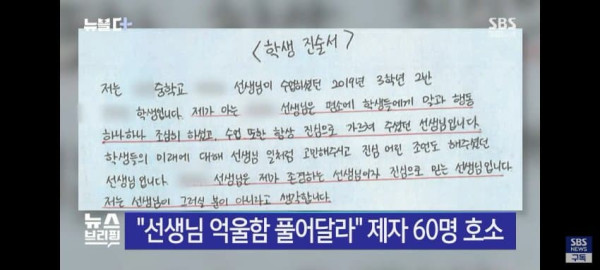 뉴블더+
SBS
<학생 진술서>
저는 중학교 선생님이 수업하셨던 2019년 3학년 2반
학생입니다. 제가 아는 선생님은 평소에 학생들에게 말과 행동
하나하나 조심히 하셨고, 수업 또한 항상 진심으로 가르쳐 주셨던 선생님입니다.
학생들의 미래에 대해 선생님 일처럼 고민해주시고 진심 어린 조언도 해주셨던
선생님 입니다. 선생님은 제가 존경하는 선생님이자 진심으로 믿는 선생님입니다
저는 선생님이 그러실 분이 아니라고 생각합니다.
뉴스
브리핑
"선생님 억울함 풀어달라" 제자 60명 호소
SBS
NEWS
구독